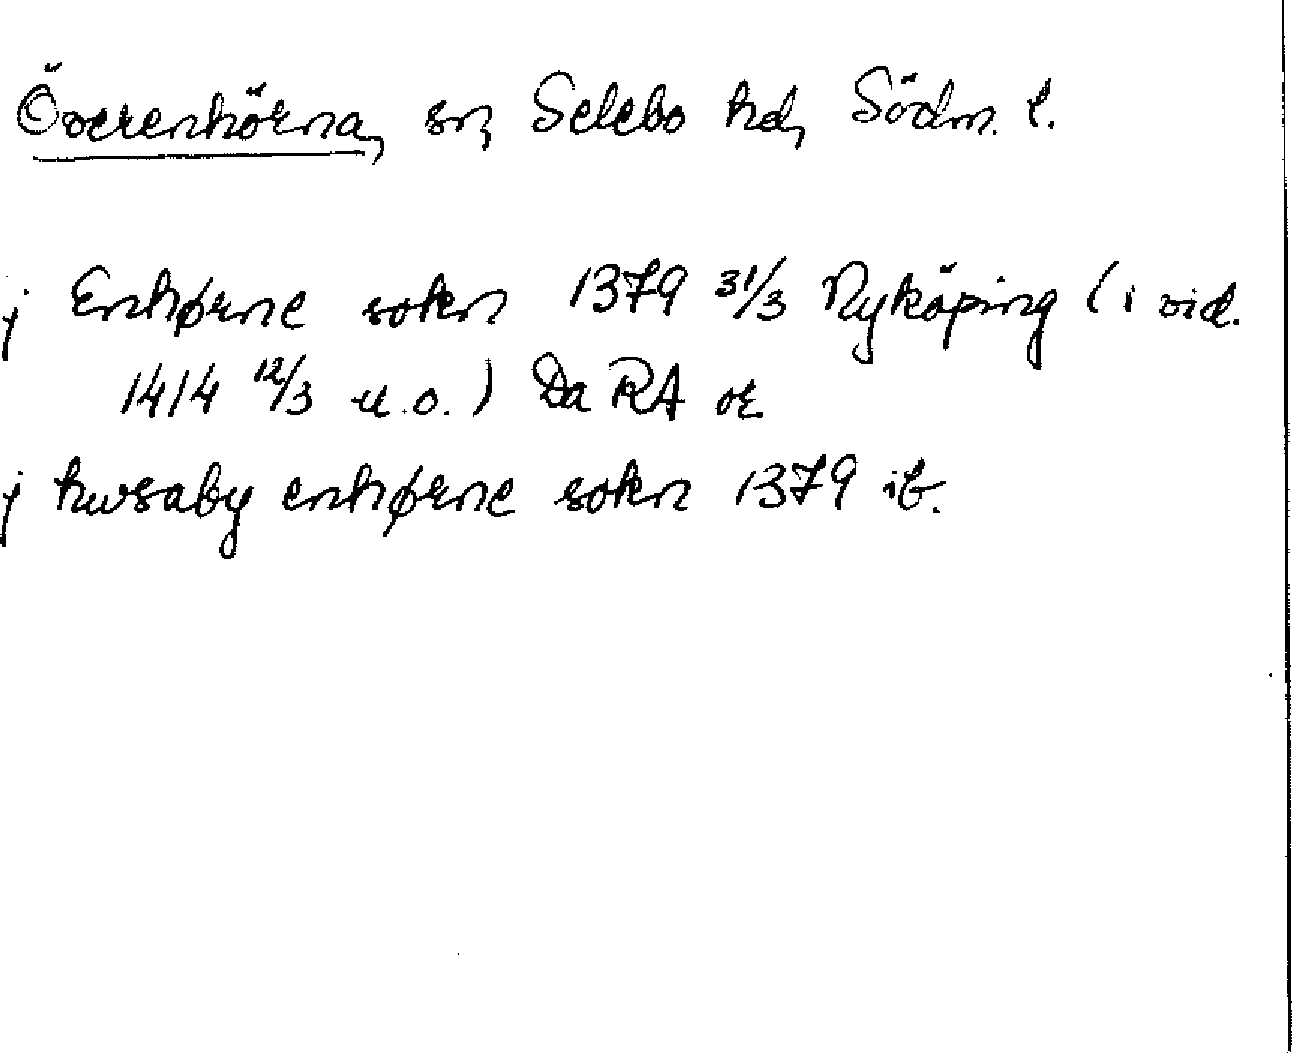 Överenhörna, sn, Selebo hd, Södm. l.
j Enhørne sokn 1379 31/3 Nyköping (i vid.
1414 12/3 u.o.) Da RA or
j hwsaby enhørne sokn 1379 ib.